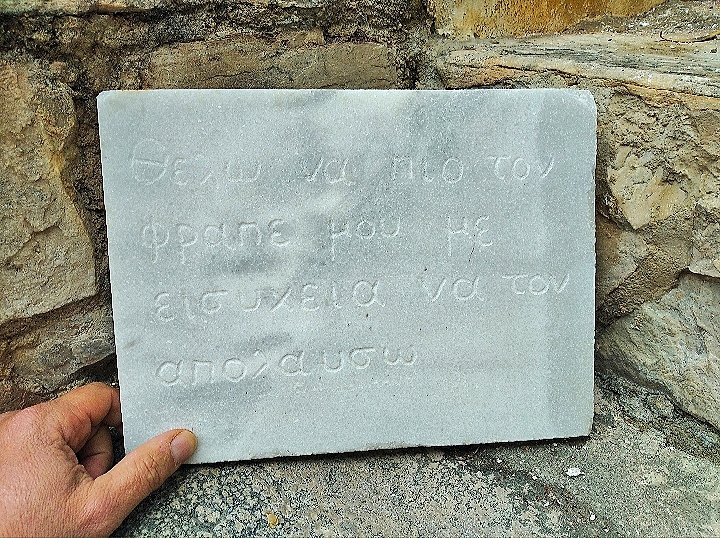 Θελω να πιο τον
φραπε μου με
εισηχεια να τον
απολαυσω